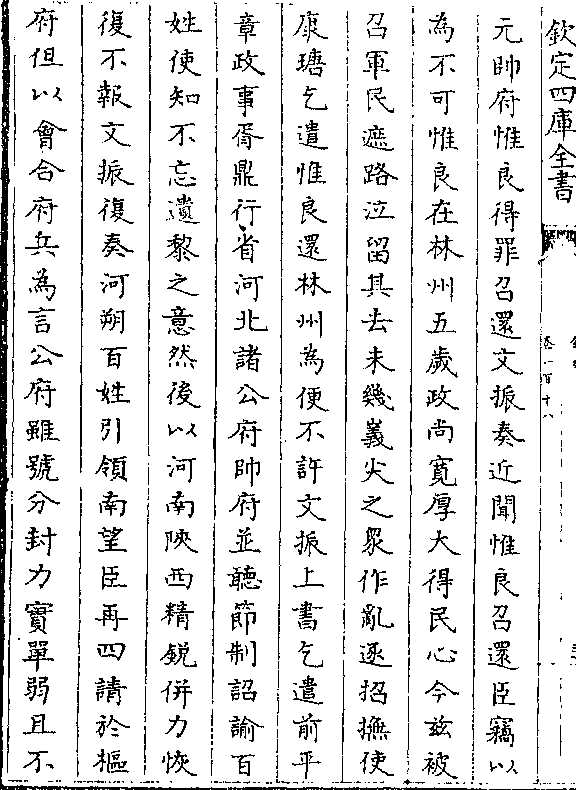 欽定四庫全書
元帥府惟良得罪召還文振奏近聞惟良召還臣竊以
為不可惟良在林州五歲政尚寬厚大得民心今茲被
召軍民遮路泣留其去未幾義尖之眾作亂逐招撫使
康瑭乞遣惟良還林州為便不許文振上書乞遣前平
章政事胥鼎行省河北諸公府帥府並聽節制詔諭百
姓使知不忘遺黎之意然後以河南陝西精銳併力恢
復不報文振復奏河朔百姓引領南望臣再四請於樞
府但以會合府兵為言公府雖號分封力實單弱且不